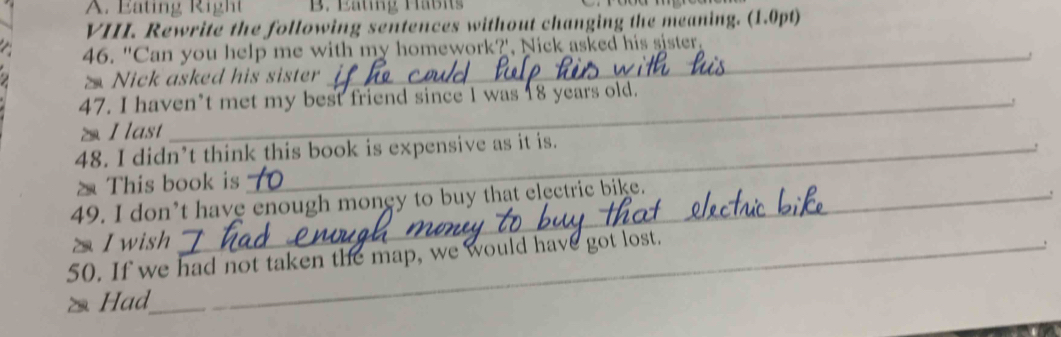 A. Eating Right B. Eating Habits
VIII. Rewrite the following sentences without changing the meaning. (1.0pt)
46. "Can you help me with my homework?', Nick asked his sister.
Nick asked his sister if he could help him with his
47. I haven't met my best friend since I was 18 years old.
I last
48. I didn't think this book is expensive as it is.
This book is to
49. I don't have enough money to buy that electric bike.
I wish I had enough money to buy that electric bike
50. If we had not taken the map, we would have got lost.
Had